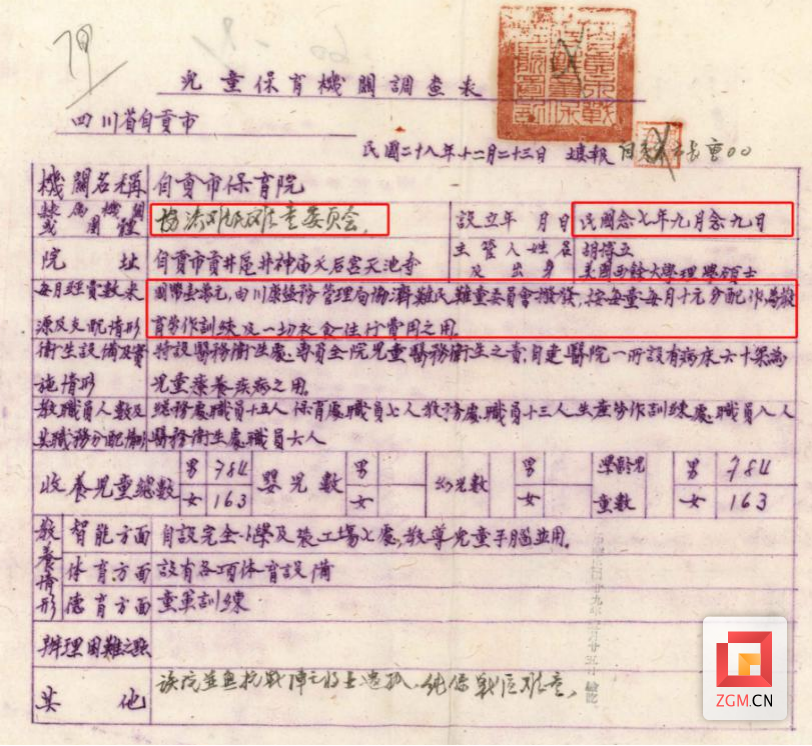 兒童保育機關調查表
四川省自貢市
民國二十八年十二月二十三日 填報
機關名稱 自貢市保育院
隸屬機關或團體 協濟難民難童委員会 設立年月日 民國念七年九月念九日
院址 自貢市貢井鳳井神庙天后宮天池寺 主管人姓名及出身 胡博立 美國西雅大學理學碩士
每月經費數來 國幣壹萬元,由川康鹽務管理局協濟難民難童委員會撥發,按每童每月十元分配作為教
源及支配情形 育勞作訓練及一切衣食住行費用之用.
衛生設備及實 特設醫務衛生處,專員全院兒童醫務衛生之責,自建醫院一所設有病床六十架為
施情形 兒童療養疾病之用.
教職員人數及 總務處職員十五人 保育處職員七人 教務處職員十三人 生產勞作訓練處職員八人
其職務分配情形 醫務衛生處職員六人
收养兒童總數 男 784 女 163 嬰兒數 男 女 幼兒數 男 女 學齡兒童數 男 784 女 163
教養情形 智能方面 自設完全小學及裝工場七處,教導兒童手腦並用.
体育方面 設有各項体育設備
德育方面 童軍訓練
辦理困難之點
其他 該院並無抗戰陣亡將士遺孤,純係戰區難童,
ZGM.CN